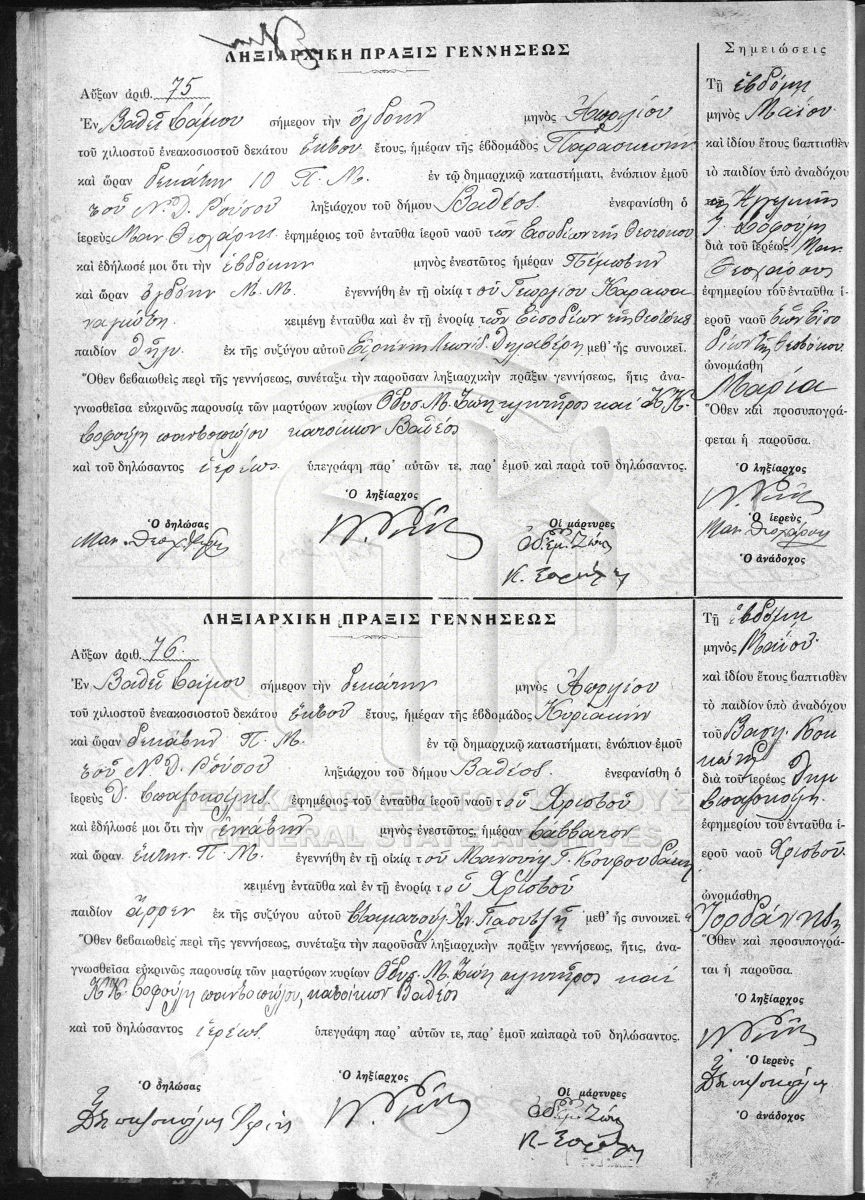 ΛΗΞΙΑΡΧΙΚΗ ΠΡΑΞΙΣ ΓΕΝΝΗΣΕΩΣ
Αὔξων ἀριθ. 75
Ἐν Βαθεῖ Σάμου σήμερον τὴν ὀγδόην μηνὸς Ἀπριλίου
τοῦ χιλιοστοῦ ἐνεακοσιοστοῦ δεκάτου ἕκτου ἔτους, ἡμέραν τῆς ἑβδομάδος Παρασκευὴν
καὶ ὥραν δεκάτην 10 Π. Μ. ἐν τῷ δημαρχικῷ καταστήματι, ἐνώπιον ἐμοῦ
τοῦ Ν. Δ. Ρούσου ληξιάρχου τοῦ δήμου Βαθέος ἐνεφανίσθη ὁ
ἱερεὺς Μαν. Θεοχάρης ἐφημέριος τοῦ ἐνταῦθα ἱεροῦ ναοῦ τῶν Εἰσοδίων τῆς Θεοτόκου
καὶ ἐδήλωσέ μοι ὅτι τὴν ἑβδόμην μηνὸς ἐνεστῶτος ἡμέραν Πέμπτην
καὶ ὥραν ὀγδόην Μ. Μ. ἐγεννήθη ἐν τῇ οἰκίᾳ τοῦ Γεωργίου Καραπα
ναγιώτη κειμένῃ ἐνταῦθα καὶ ἐν τῇ ἐνορίᾳ τῶν Εἰσοδίων τῆς Θεοτόκου
παιδίον θῆλυ ἐκ τῆς συζύγου αὐτοῦ Εἰρήνης Λεωνίδ. μεθ' ἧς συνοικεῖ.
Ὅθεν βεβαιωθεὶς περὶ τῆς γεννήσεως, συνέταξα τὴν παροῦσαν ληξιαρχικὴν πρᾶξιν γεννήσεως, ἥτις ἀνα-
γνωσθεῖσα εὐκρινῶς παρουσίᾳ τῶν μαρτύρων κυρίων Ὀδυσ. Μ. Ζώη κλητῆρος καὶ Κ. Κ.
Σοφούλη παντοπώλου κατοίκων Βαθέος
καὶ τοῦ δηλώσαντος ἱερέως ὑπεγράφη παρ' αὐτῶν τε, παρ' ἐμοῦ καὶ παρὰ τοῦ δηλώσαντος.
Ὁ δηλώσας
Ὁ ληξίαρχος
Οἱ μάρτυρες
Σημειώσεις
Τῇ ἑβδόμῃ
μηνὸς Μαΐου
καὶ ἰδίου ἔτους βαπτισθὲν
τὸ παιδίον ὑπὸ ἀναδόχου
Σοφούλη
διὰ τοῦ ἱερέως Μαν.
Θεοχάρους
ἐφημερίου τοῦ ἐνταῦθα ἱ-
εροῦ ναοῦ τῶν Εἰσο
δίων τῆς Θεοτόκου
ὠνομάσθη
Μαρία
Ὅθεν καὶ προσυπογρά-
φεται ἡ παροῦσα.
Ὁ ληξίαρχος
Ὁ ἱερεὺς
Ὁ ἀνάδοχος
ΛΗΞΙΑΡΧΙΚΗ ΠΡΑΞΙΣ ΓΕΝΝΗΣΕΩΣ
Αὔξων ἀριθ. 76
Ἐν Βαθεῖ Σάμου σήμερον τὴν δεκάτην μηνὸς Ἀπριλίου
τοῦ χιλιοστοῦ ἐνεακοσιοστοῦ δεκάτου ἕκτου ἔτους, ἡμέραν τῆς ἑβδομάδος Κυριακὴν
καὶ ὥραν δεκάτην Π. Μ. ἐν τῷ δημαρχικῷ καταστήματι, ἐνώπιον ἐμοῦ
τοῦ Ν. Δ. Ρούσου ληξιάρχου τοῦ δήμου Βαθέος ἐνεφανίσθη ὁ
ἱερεὺς Δ. ἐφημέριος τοῦ ἐνταῦθα ἱεροῦ ναοῦ τοῦ Χριστοῦ
καὶ ἐδήλωσέ μοι ὅτι τὴν ἐννάτην μηνὸς ἐνεστῶτος, ἡμέραν Σάββατον
καὶ ὥραν ἕκτην Π. Μ. ἐγεννήθη ἐν τῇ οἰκίᾳ τοῦ Μανουὴλ Γ. Κουφουδάκη
κειμένῃ ἐνταῦθα καὶ ἐν τῇ ἐνορίᾳ τοῦ Χριστοῦ
παιδίον ἄρρεν ἐκ τῆς συζύγου αὐτοῦ μεθ' ἧς συνοικεῖ.
Ὅθεν βεβαιωθεὶς περὶ τῆς γεννήσεως, συνέταξα τὴν παροῦσαν ληξιαρχικὴν πρᾶξιν γεννήσεως, ἥτις, ἀνα-
γνωσθεῖσα εὐκρινῶς παρουσίᾳ τῶν μαρτύρων κυρίων Ὀδυσ. Μ. Ζώη κλητῆρος καὶ
Κ. Κ. Σοφούλη παντοπώλου, κατοίκων Βαθέος
καὶ τοῦ δηλώσαντος ἱερέως ὑπεγράφη παρ' αὐτῶν τε, παρ' ἐμοῦ καὶ παρὰ τοῦ δηλώσαντος.
Ὁ δηλώσας
Ὁ ληξίαρχος
Οἱ μάρτυρες
Τῇ ἑβδόμῃ
μηνὸς Μαΐου
καὶ ἰδίου ἔτους βαπτισθὲν
τὸ παιδίον ὑπὸ ἀναδόχου
τοῦ Βασ.
διὰ τοῦ ἱερέως Δημ
ἐφημερίου τοῦ ἐνταῦθα ἱ-
εροῦ ναοῦ Χριστοῦ
ὠνομάσθη
Ἰορδάνης
Ὅθεν καὶ προσυπογρά-
ται ἡ παροῦσα.
Ὁ ληξίαρχος
Ὁ ἱερεὺς
Ὁ ἀνάδοχος
ΓΕΝΙΚΑ ΑΡΧΕΙΑ ΤΟΥ ΚΡΑΤΟΥΣ
GENERAL STATE ARCHIVES